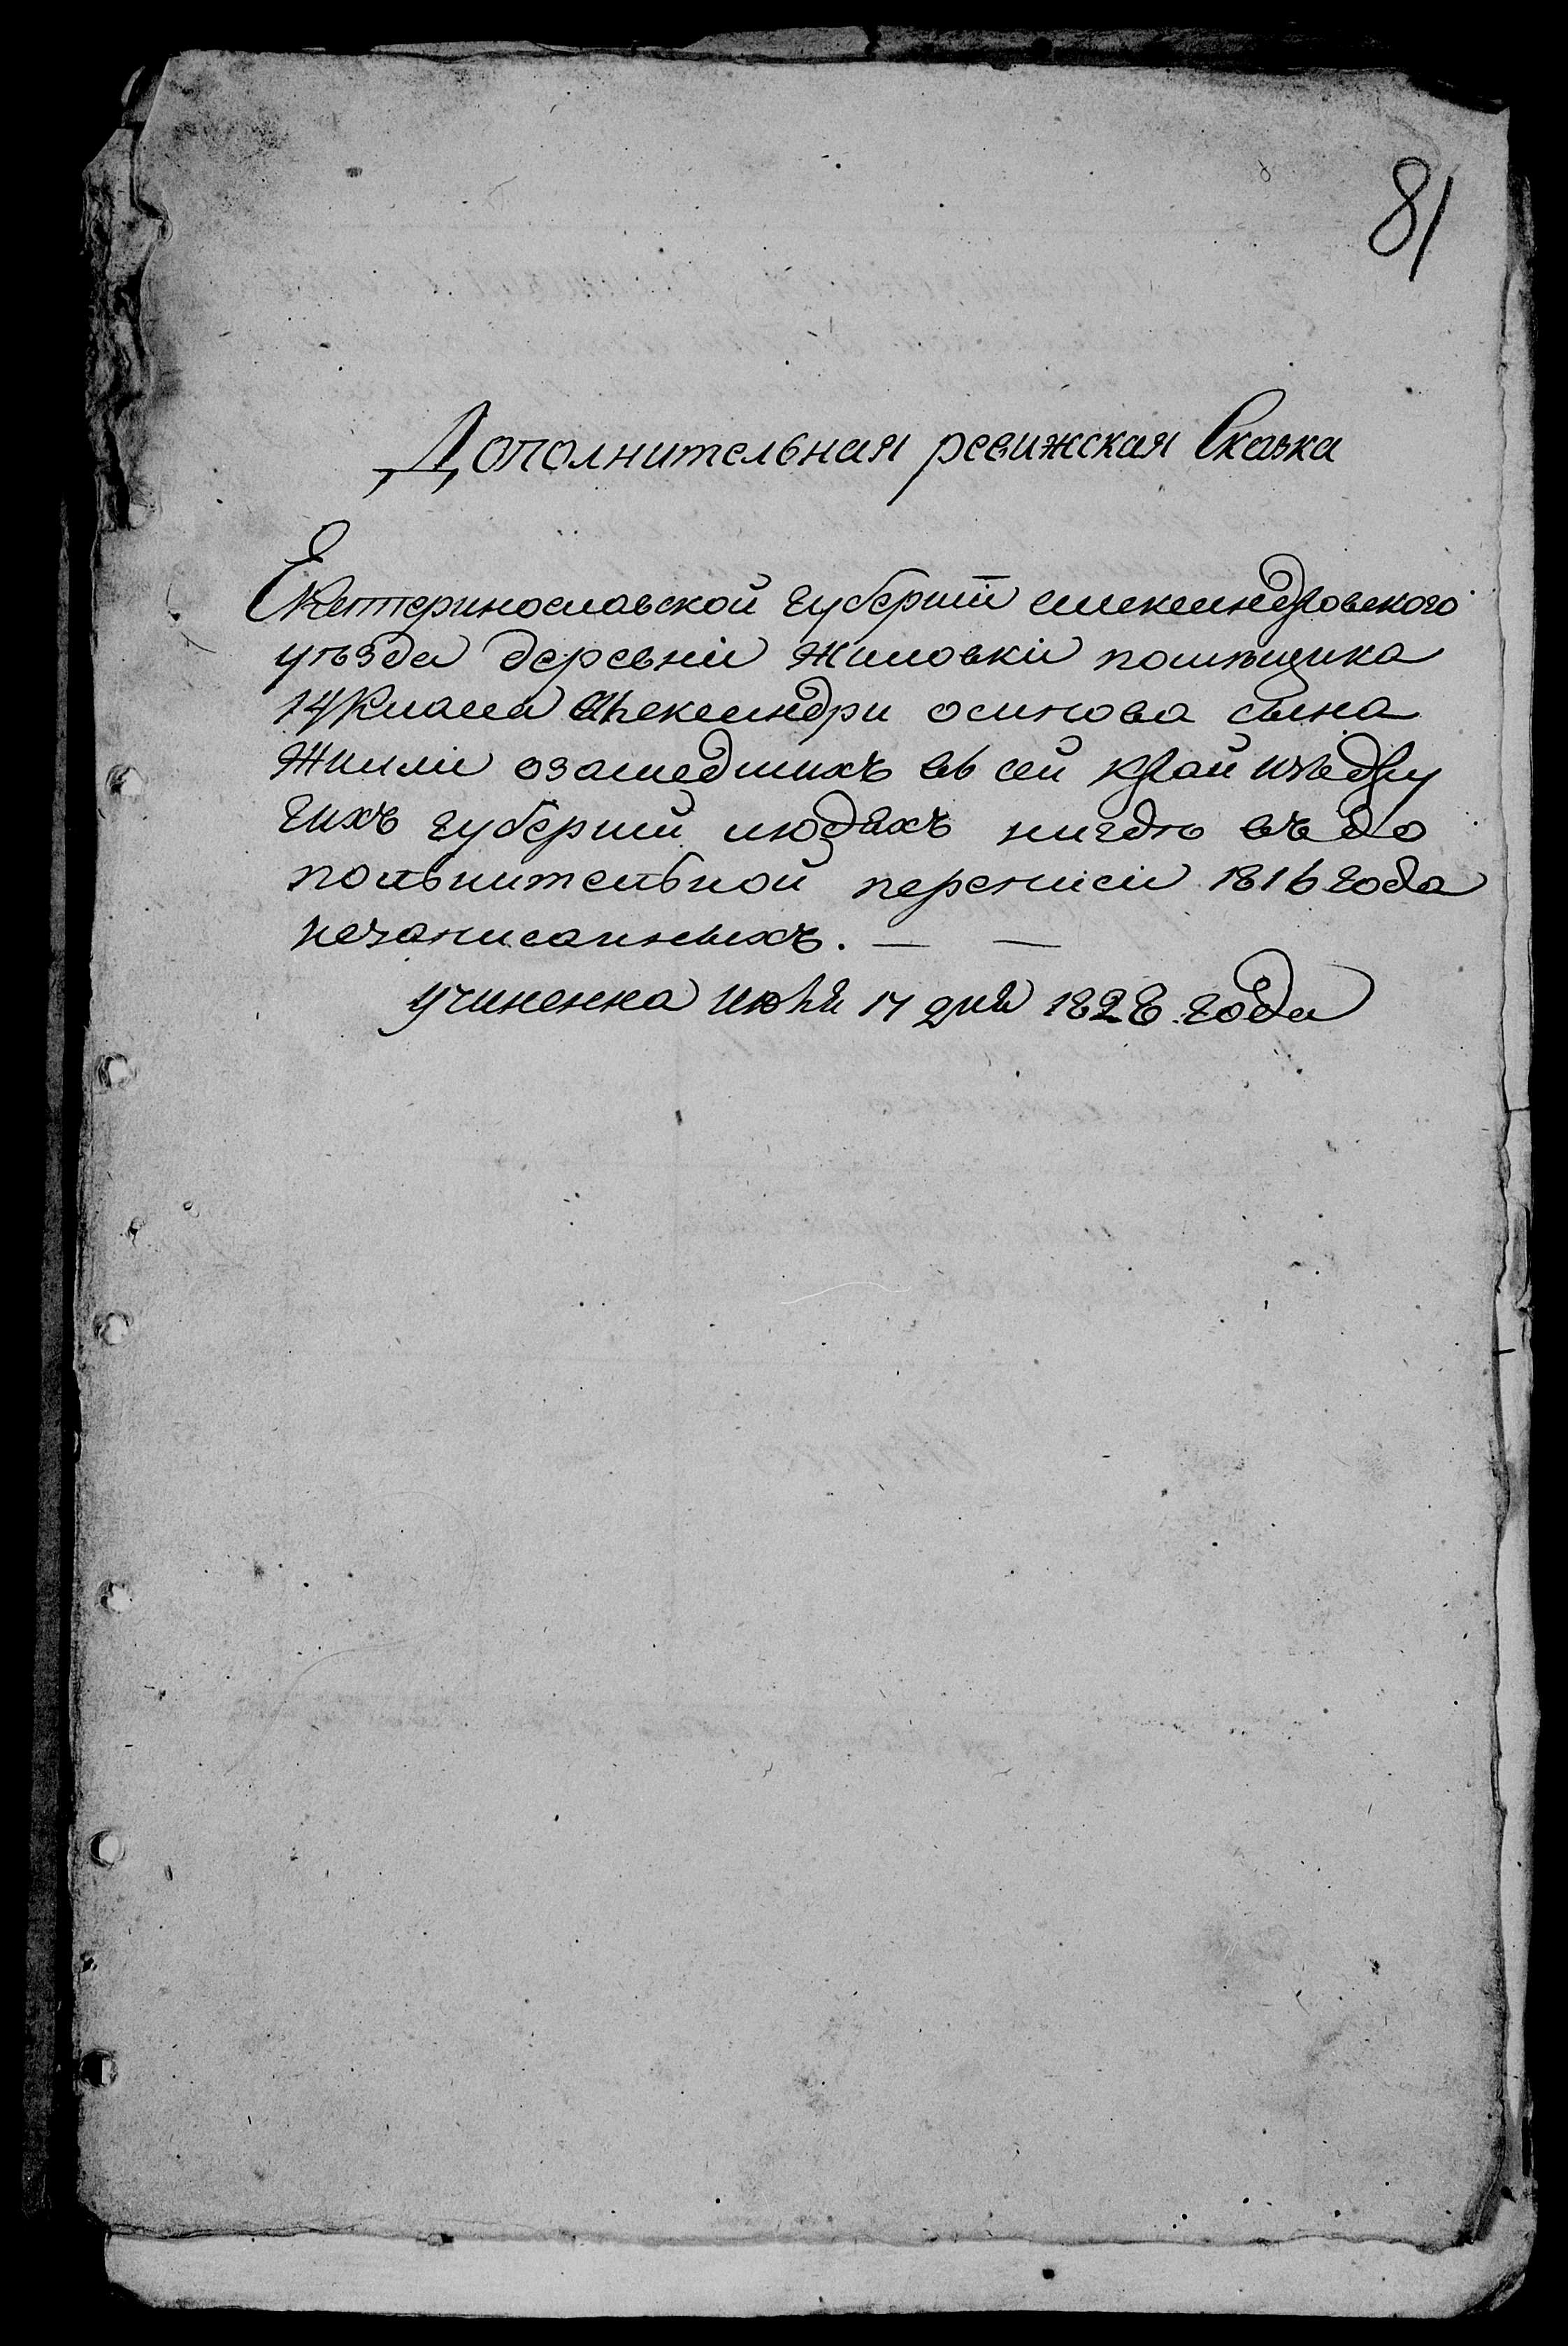 81
Дополнительная ревижская Сказка
Екатеринославской губернїи александровского
уѣзда деревни Жиловки помѣщика
14 Класса Александра осипова сына
озашедшихъ въ сей край изъ дру
гихъ губерний людяхъ нигдѣ въ до
полнительной переписи 1816 года
незаписанныхъ. — —
учиненна июня 17 дня 1828 года